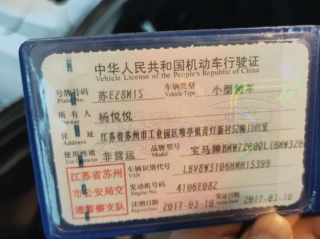 中华人民共和国机动车行驶证
Vehicle License of the People's Republic of China
号牌号码 苏E28M15 车辆类型 小型轿车
Plate No. Vehicle Type
所有人 杨悦悦
Owner
江苏省苏州市工业园区
使用性质 非营运 品牌型号 宝马牌
江苏省苏州 车辆识别代号
市公安局交 发动机号码 4106E082
通警察支队 注册日期 2017-03-10 发证日期 2017-03-10